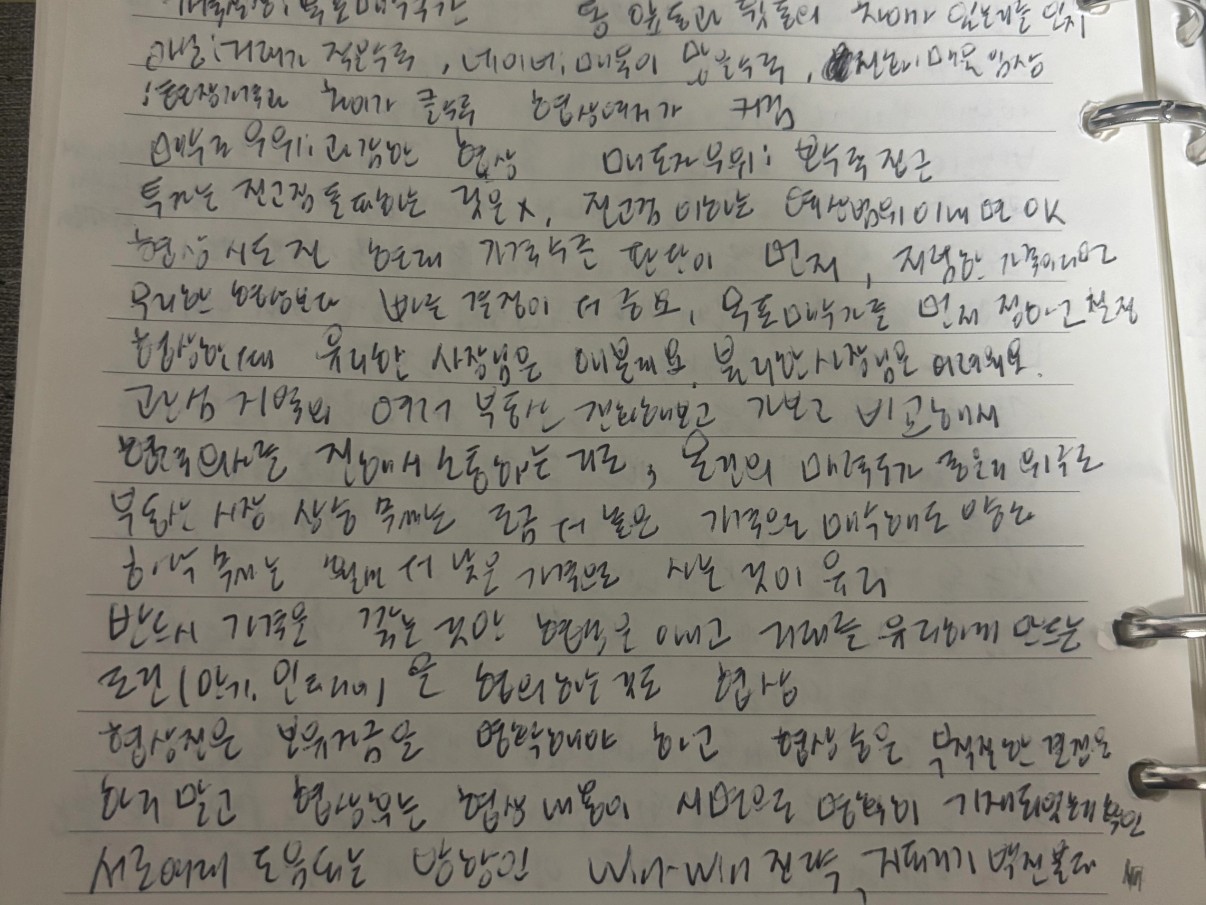 동 앞동과 뒷동의 차이가 있는지를 인지
거래가 적을수록, 네이버: 매물이 많을수록, 전화: 매물임장
현장개루라 차이가 클수록 협상여지가 커짐
매수자 우위: 과감한 협상 매도자 우위: 보수적 접근
투자는 전고점 돌파하는 것은 X, 전고점 이하는 예산범위 이내면 OK
협상 시도 전 현재 가격수준 판단이 먼저, 저렴한 가격이라면
무리한 협상보다 빠른 결정이 더 중요, 목표매수가를 먼저 정하고 협상
협상할때 유리한 사장님은 해볼게요, 불리한 사장님은 어려워요.
관심 지역의 여러 부동산 전화해보고 가보고 비교해서
협력의사를 전해서 소통하는 기로, 물건의 매력도가 좋은지 위주로
부동산 시장 상승 무렵에는 조금 더 높은 가격으로 매수해도 양호
하락 무렵에는 훨씬 더 낮은 가격으로 사는 것이 유리
반드시 가격을 깎는 것만 협상은 아니고 거래를 유리하게 만드는
조건(만기, 인테리어)을 협의하는 것도 협상
협상전은 보유자금을 명확해야 하고 협상 중은 부적절한 결정은
하지 말고 협상후는 협상 내용이 서면으로 명확히 기재되었는지 확인
서로에게 도움되는 방향인 Win-Win 전략, 지피지기 백전불태